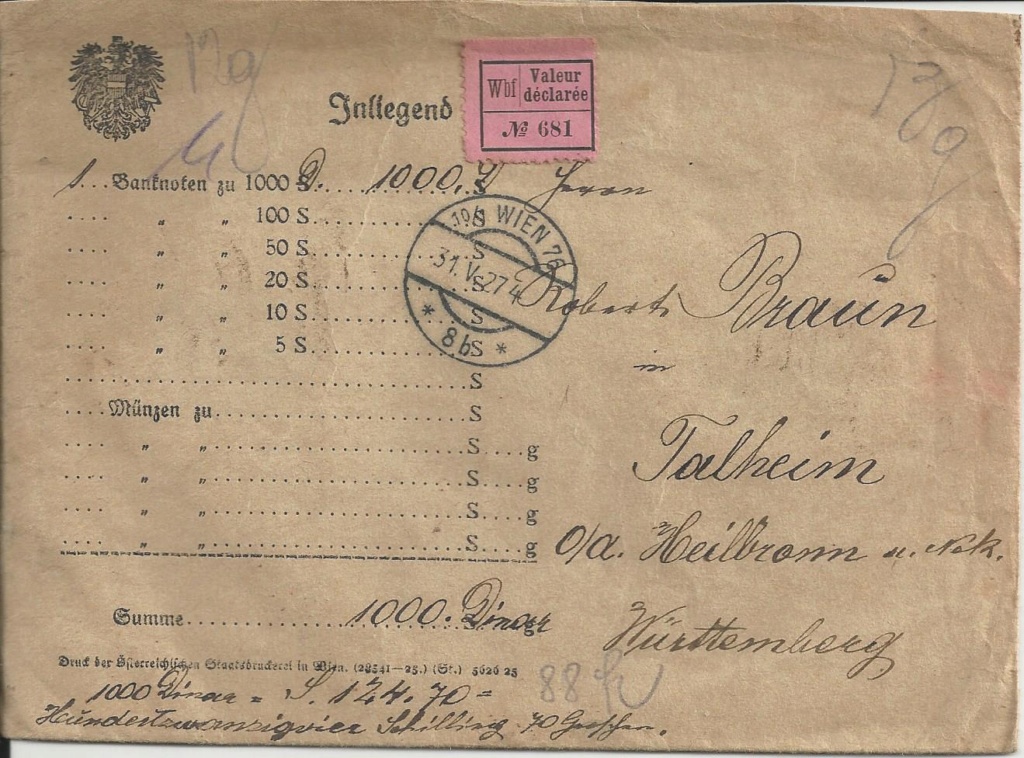 Inliegend
Wbf Valeur déclarée
№ 681
1... Banknoten zu 1000 D. 1000. D
.... " " 100 S. S
.... " " 50 S. S
.... " " 20 S. S
.... " " 10 S. S
.... " " 5 S. S
S
.... Münzen zu S
.... " " S....g
.... " " S....g
.... " " S....g
.... " " S....g
Summe 1000. Dinar
Druck der Österreichischen Staatsdruckerei in Wien. (28541—25.) (St.) 5626 25
1000 Dinar = S. 124.70 =
Hundertzwanzigvier Schilling 70 Groschen.
WIEN 76
31.V.27
* 8b *
Herrn
Robert Braun
in
Talheim
O/a. Heilbronn a. Nek.
Württemberg